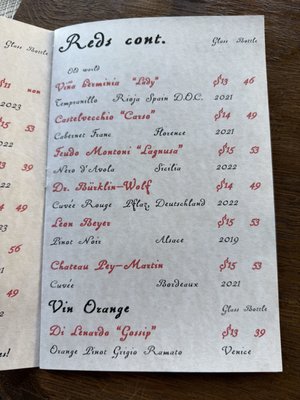 Glass Bottle
$11 non
2023
15 53
13 39
14 49
56
49
s!
Reds cont. Glass Bottle
Old world
Viña Herminia "Lady" $13 46
Tempranillo Rioja Spain D.O.C. 2021
Castelvecchio "Carso" $14 49
Cabernet Franc Florence 2021
Feudo Montoni "Lagnusa" $15 53
Nero d'Avola Sicilia 2022
Dr. Bürklin-Wolf $14 49
Cuvée Rouge Pflaz, Deutschland 2022
Léon Beyer $15 53
Pinot Noir Alsace 2019
Chateau Pey-Martin $15 53
Cuvée Bordeaux 2021
Vin Orange Glass Bottle
Di Lénardo "Gossip" $13 39
Orange Pinot Grigio Ramato Venice